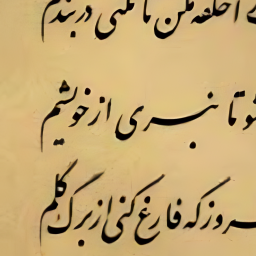 حلقه مکن تا نکنی در بندم
شو تا نبری از خویشم
روز که فارغ کنی از برگ گلم